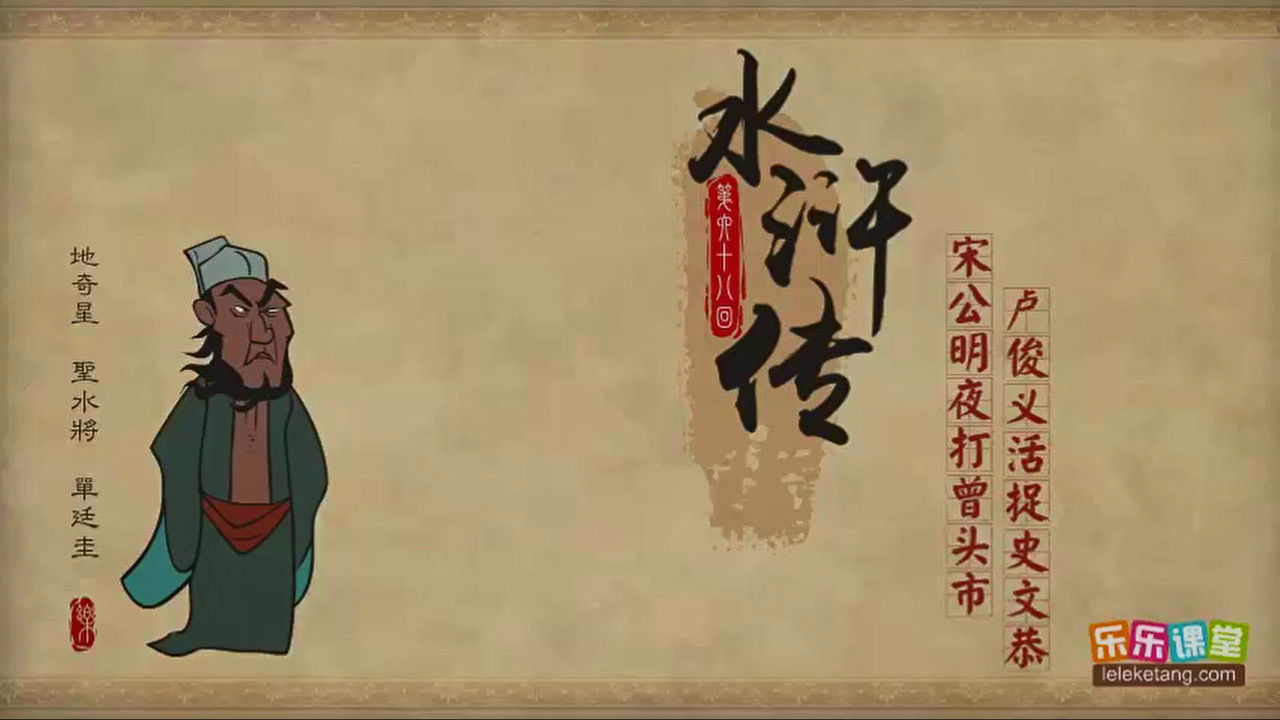 水浒传
第六十八回
宋公明夜打曾头市
卢俊义活捉史文恭
地奇星 聖水將 單廷圭
樂
乐乐课堂
leleketang.com